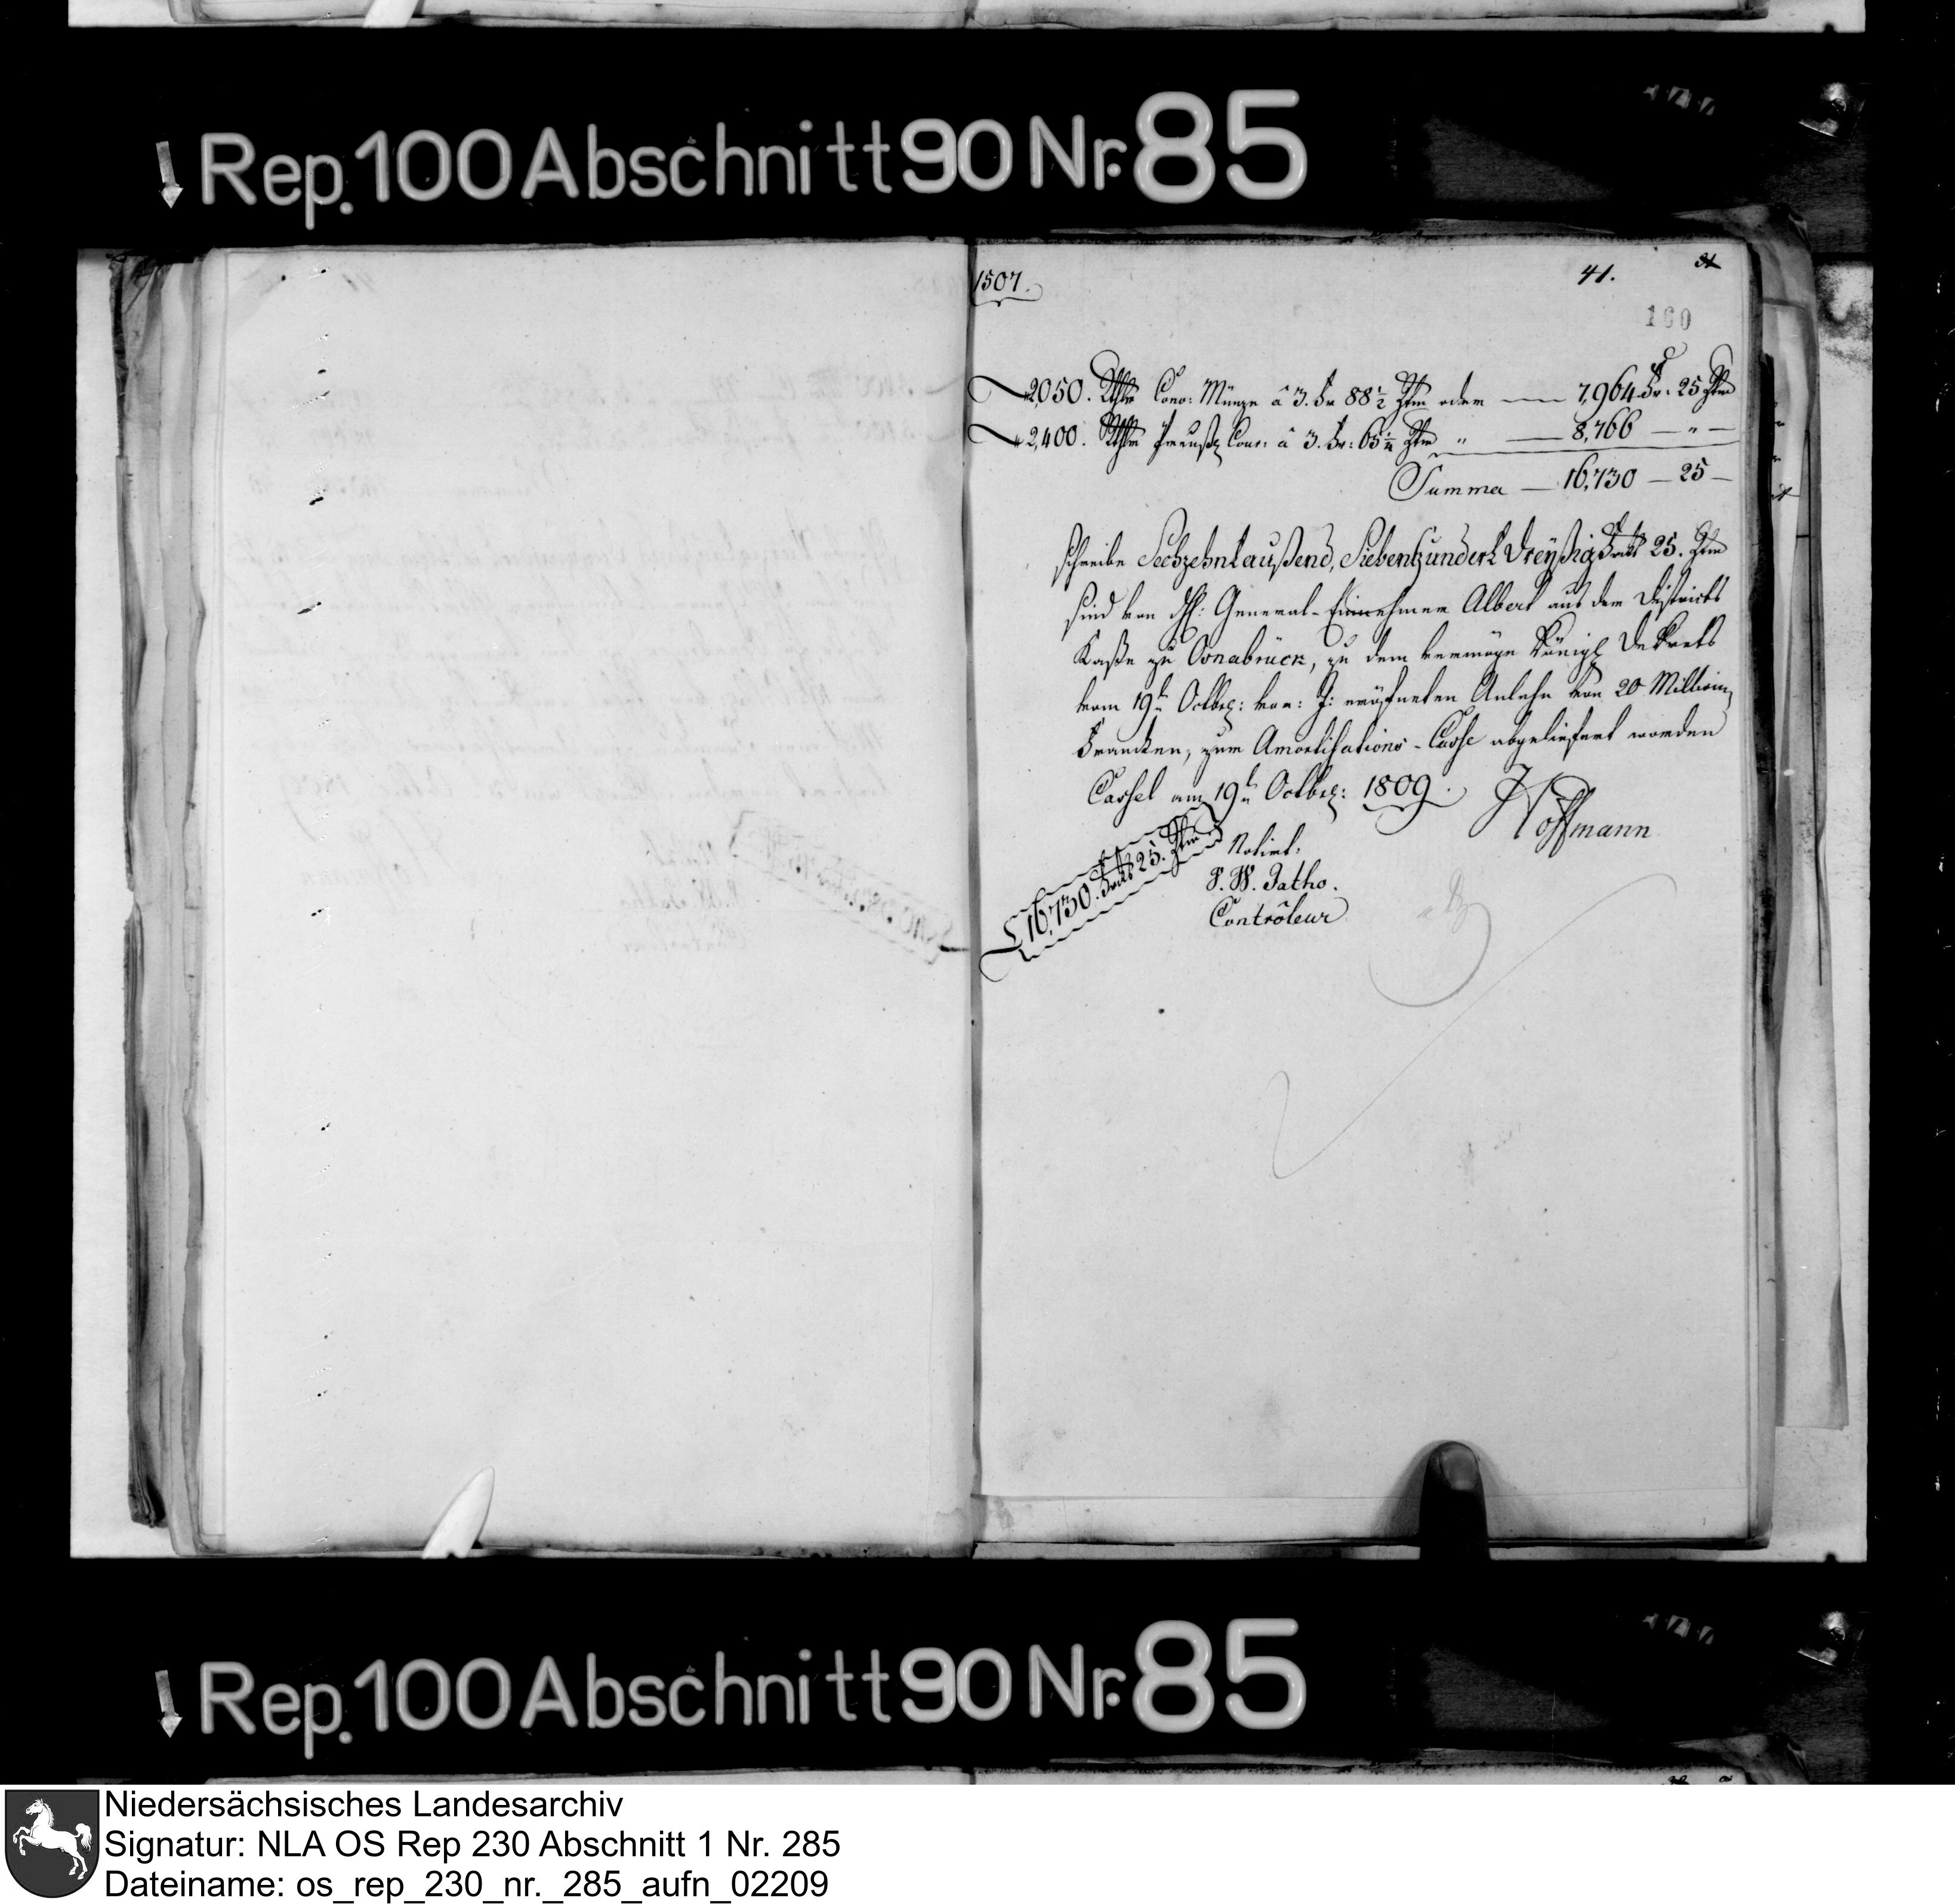 Rep. 100 Abschnitt 90 Nr. 85
1507.
41.
31
160
2,050. Rthlr Conv: Münze â 3. Fr 88 1/2 Ctm oder — 7,964 Fr: 25 Ctm
2,400. Rthlr Preuß Cour: â 3. Fr: 65 1/4 Ctm " — 8,766 — " —
Summa — 16,730 — 25 —
schreibe Sechzehntaußend, Siebenhundert Dreyßig Frcs 25. Ctm
sind von H: General-Einnehmer Albert aus dem Districts
Kaße zu Osnabrück, zu dem vermöge Königl Dekrets
vom 19ten Octbr: vor: J: eröfneten Anlehn von 20 Million
Francken, zum Amortisations-Casse abgeliefert worden
Cassel am 19ten Octbr: 1809.
Hoffmann
16,730. Frcs 25. Ctm
Notirt:
F. W. Jatho.
Contrôleur
Rep. 100 Abschnitt 90 Nr. 85
Niedersächsisches Landesarchiv
Signatur: NLA OS Rep 230 Abschnitt 1 Nr. 285
Dateiname: os_rep_230_nr._285_aufn_02209